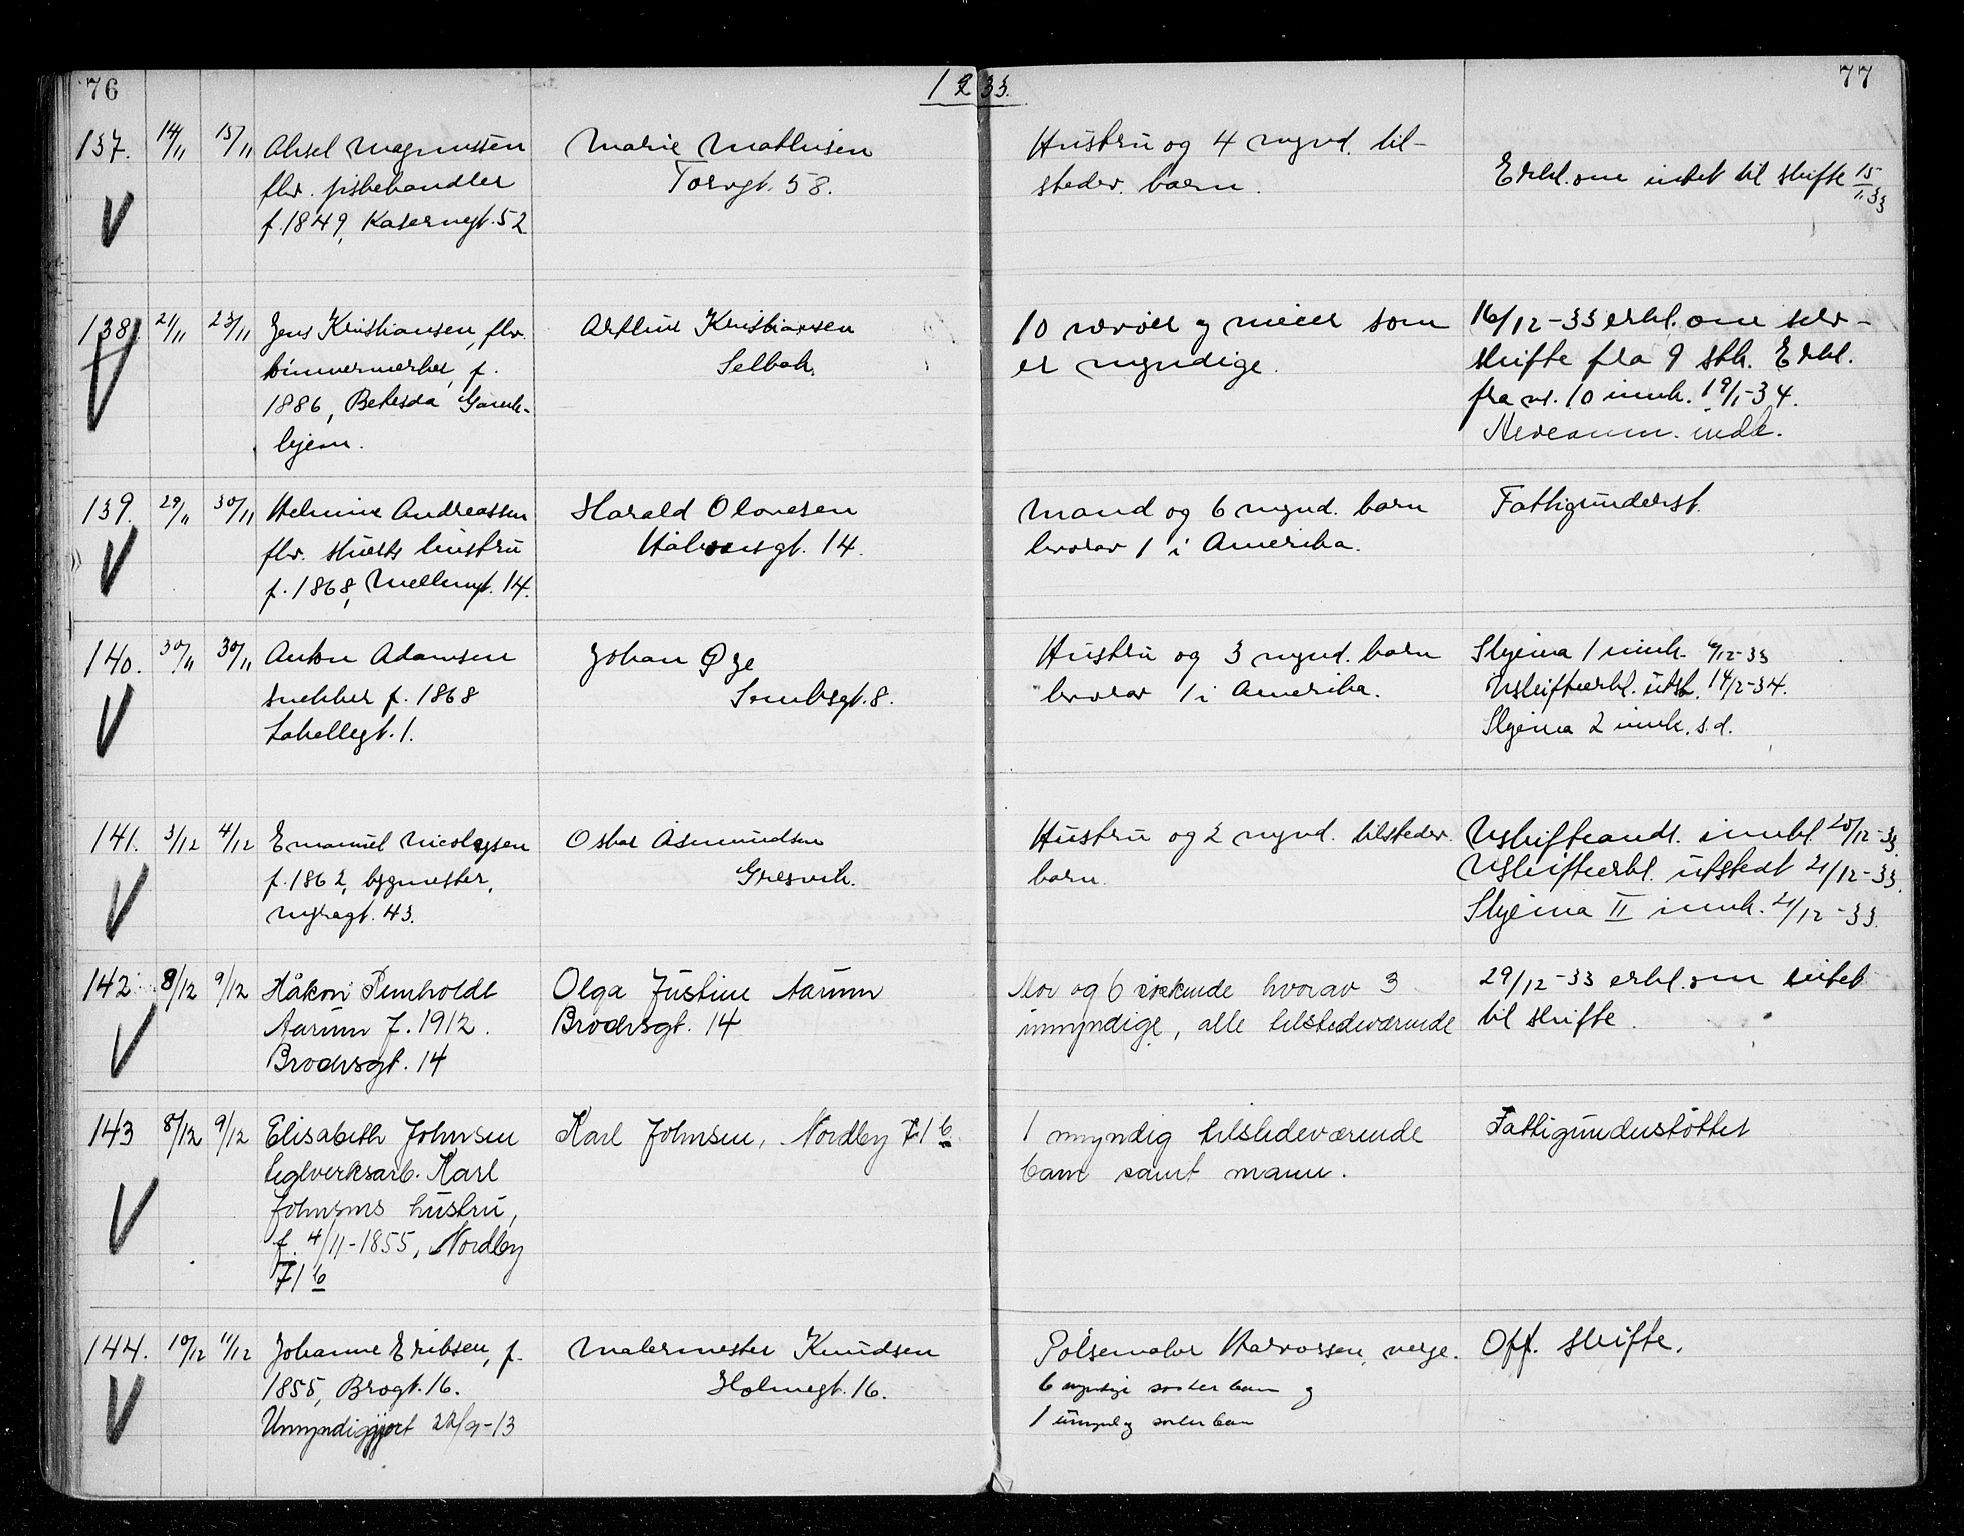 76
1933.
77
137. 14/11 15/11 Aksel Magnussen
fhv. fiskehandler
f. 1849, Kasernegt. 52
Marie Mathisen
Torvgt. 58.
Hustru og 4 mynd. til-
stedev. barn.
Erkl. om intet til skifte 15/11 33
138. 21/11 23/11 Jens Kristiansen, fhv.
tømmermerker, f.
1886, Betesda Gamle-
hjem.
Arthur Kristiansen
Selbak.
10 nevøer og nieser som
er myndige.
16/12-33 erkl. om selv-
skifte fra 9 stk. Erkl.
fra nr. 10 innk. 19/1-34.
139. 29/11 30/11 Helmine Andreassen
fhv. skuests hustru
f. 1868, Mellemgt. 14.
Harald Olavesen
Halvorsgt. 14.
Mand og 6 mynd. barn
hvorav 1 i Amerika.
Fattigunderst.
140. 30/11 30/11 Anton Adamsen
snekker f. 1868
Labellegt. 1.
Johan Øye
Sorenskgt. 8.
Hustru og 3 mynd. barn
hvorav 1 i Amerika.
Skjema 1 innk. 6/12-33
Uskifteerkl. utst. 14/2-34.
Skjema 2 innk. s.d.
141. 3/12 4/12 Emanuel Nicolaysen
f. 1862, bygmester,
Nygagt. 43.
Oskar Asmundsen
Gresvik.
Hustru og 2 mynd. tilstedev.
barn.
Uskifteandr. innkl. 20/12-33.
Uskifteerkl. utstedt 21/12-33.
Skjema II innk. 21/12-33.
142. 8/12 9/12 Håkon Reinholdt
Aarum f. 1912.
Brochsgt. 14
Olga Justine Aarum
Brochsgt. 14
Mor og 6 søskende hvorav 3
umyndige, alle tilstedeværende
29/12-33 erkl. om intet
til skifte.
143 8/12 9/12 Elisabeth Johnsen
teglverksarb. Karl
Johnsens hustru,
f. 4/11-1855, Nordby
71 b
Karl Johnsen, Nordby 71 b
1 myndig tilstedeværende
barn samt mann.
Fattigunderstøttet
144. 10/12 11/12 Johanne Eriksen, f.
1855, Brogt. 16.
Umyndiggjort 22/9-13
Malermester Knudsen
Holmegt. 16.
Pølsemaker Halvorsen, verge.
6 myndige søsterbarn og
1 umyndig søsterbarn
Off. skifte.